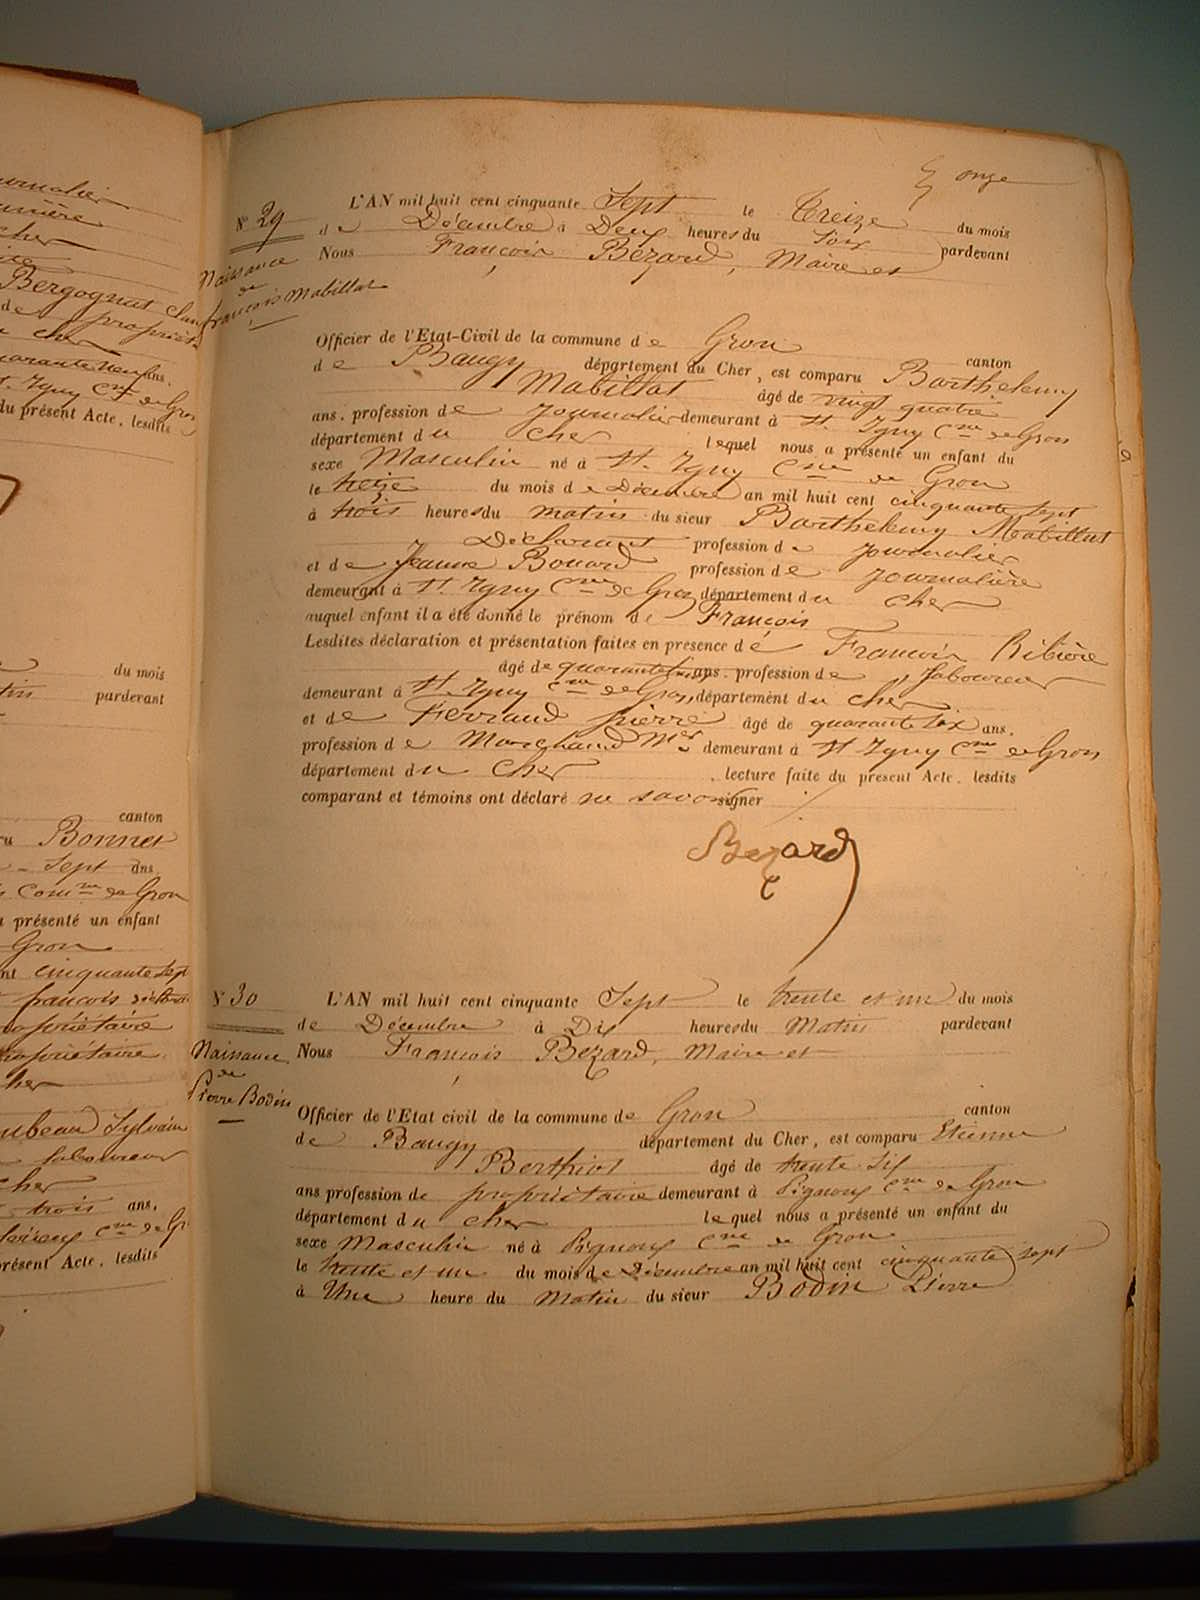 onze
N° 29
Naissance
de
françois Mabillat
L'AN mil huit cent cinquante Sept le Treize du mois
de Décembre à Deux heures du Soir pardevant
Nous François Bézard, Maire et
Officier de l'Etat-Civil de la commune de Gron
de Baugy canton
département du Cher, est comparu Barthelemy
Mabillat âgé de vingt quatre
ans, profession de Journalier demeurant à St. Igny Cne de Gron
département du cher lequel nous a présenté un enfant du
sexe Masculin né à St. Igny Cne de Gron
le treize du mois de Décembre an mil huit cent cinquante sept
à trois heures du matin du sieur Barthelemy Mabillat
Déclarant profession de Journalier
et de Jeanne Bouard profession de Journalière
demeurant à St. Igny Cne de Gron, département du cher
auquel enfant il a été donné le prénom de François
Lesdites déclaration et présentation faites en presence de François Ribière
âgé de quarante ans, profession de Laboureur
demeurant à St. Igny Cne de Gron, département du cher
et de Ferrand pierre âgé de quarante six ans,
profession de Marchand Mer demeurant à St Igny Cne de Gron
département du Cher lecture faite du present Acte, lesdits
comparant et témoins ont déclaré ne savoir signer
Bezard
N° 30
Naissance
de
Pierre Bodin
L'AN mil huit cent cinquante Sept le trente et un du mois
de Décembre à Dix heures du Matin pardevant
Nous François Bézard, Maire et
Officier de l'Etat civil de la commune de Gron canton
de Baugy département du Cher, est comparu Etienne
Berthiot âgé de trente Six
ans profession de propriétaire demeurant à Pignoux Cne de Gron
département du cher lequel nous a présenté un enfant du
sexe Masculin né à Pignoux Cne de Gron
le trente et un du mois de Décembre an mil huit cent cinquante sept
à Une heure du Matin du sieur Bodin Pierre